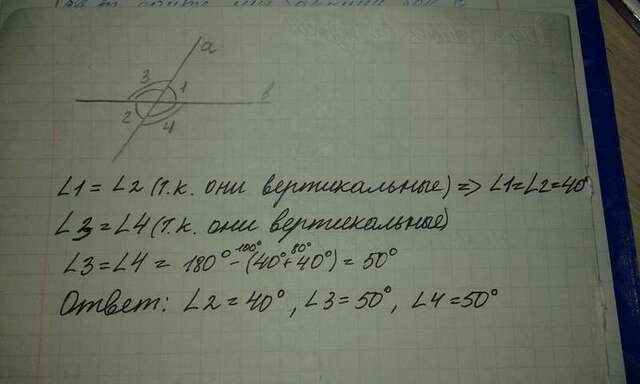 a
3
2
1
4
b
∠1 = ∠2 (т.к. они вертикальные) => ∠1=∠2=40°
∠3 = ∠4 (т.к. они вертикальные)
∠3 = ∠4 = 180° - (40° + 40°) = 50°
100° 80°
Ответ: ∠2 = 40°, ∠3 = 50°, ∠4 = 50°